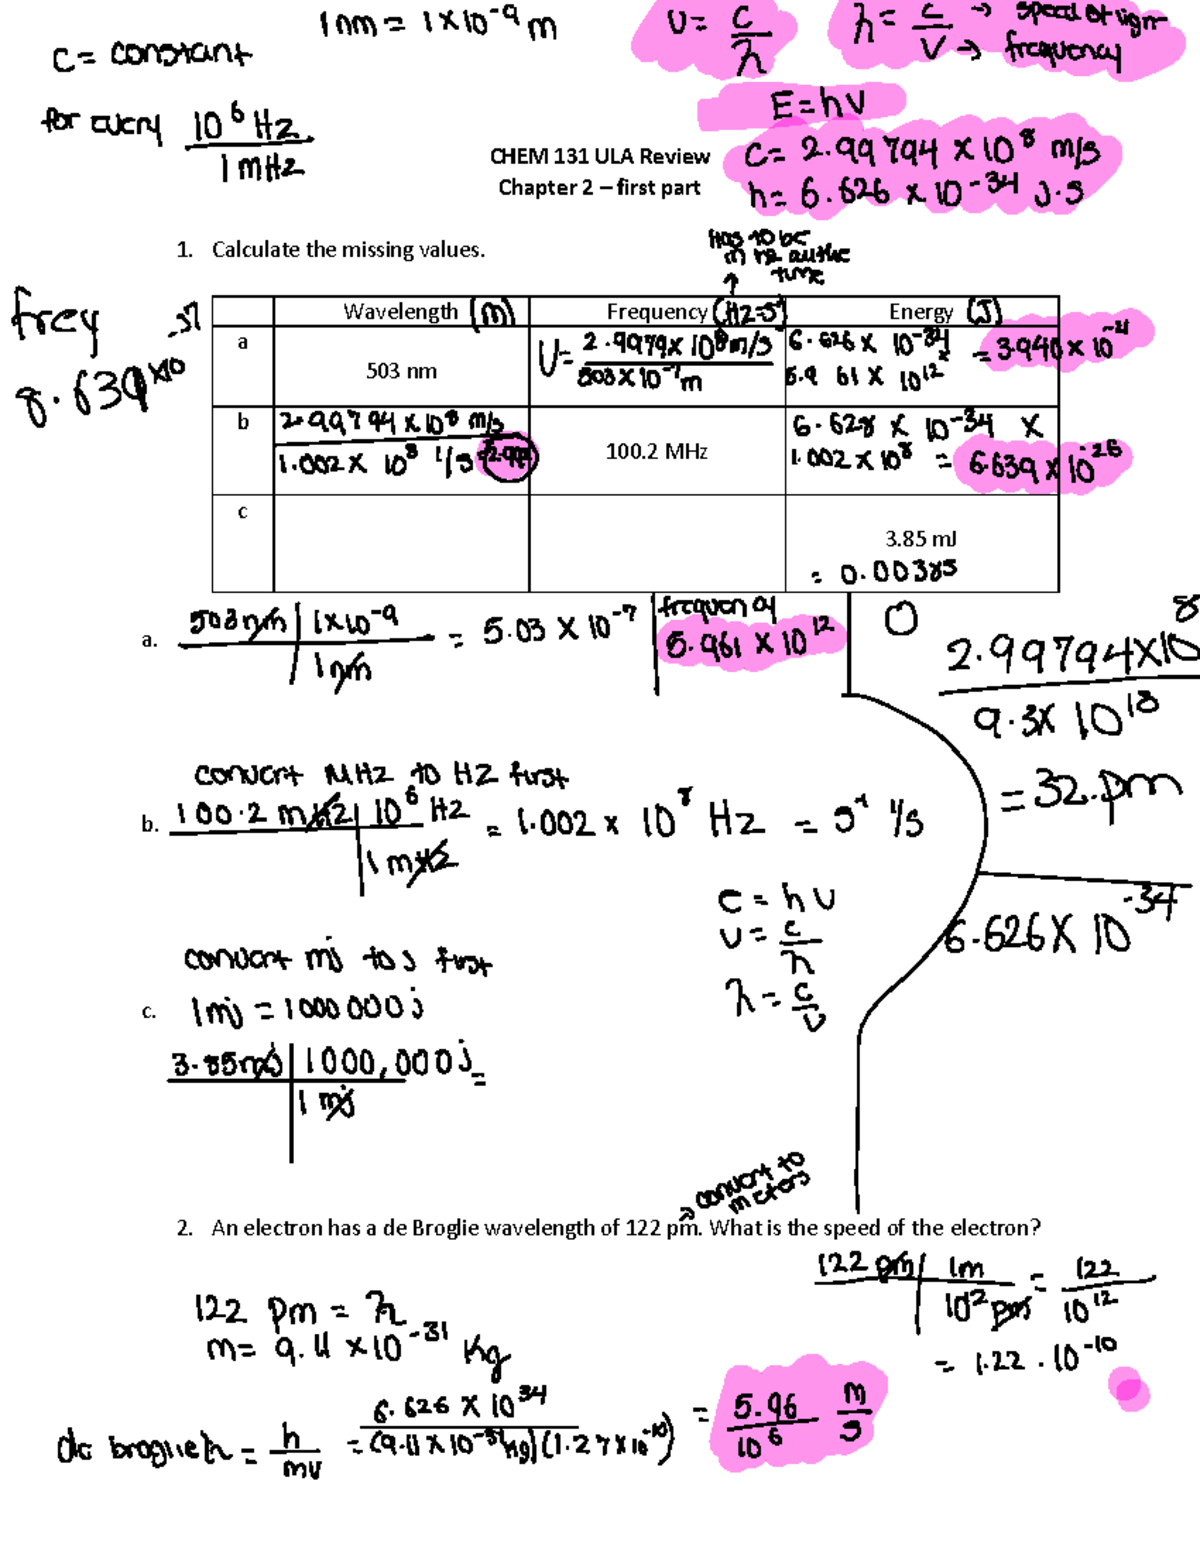 1 nm = 1 x 10⁻⁹ m
c = constant
for every 10⁶ Hz / 1 MHz
υ = c / λ
λ = c → speed of light / v → frequency
E = hv
c = 2.99794 x 10⁸ m/s
h = 6.626 x 10⁻³⁴ J·s
CHEM 131 ULA Review
Chapter 2 – first part
1. Calculate the missing values.
Has to be
time
frey
8.639 x10
Wavelength (m) Frequency (Hz=s Energy (J)
a 503 nm υ = 2.9979 x 10⁸ m/s / 503 x 10⁻⁷ m 6.626 x 10⁻³⁴ x 5.961 x 10¹² = 3.940 x 10⁻²¹
b 2.99794 x 10⁸ m/s / 1.002 x 10⁸ 1/s 100.2 MHz 6.628 x 10⁻³⁴ x 1.002 x 10⁸ = 6.639 x 10⁻²⁶
c 3.85 mJ
= 0.00385
a. 503 nm | 1x10⁻⁹ / 1 nm = 5.03 x 10⁻⁷
frequency
5.961 x 10¹²
2.99794x10⁸ / 9.3x 10¹⁸
= 32.pm
convert MHz to Hz first
b. 100.2 mHz | 10⁶ Hz / 1 mHz = 1.002 x 10⁸ Hz = s⁻¹ 1/s
6.626 x 10⁻³⁴
c = h υ
υ = c / λ
λ = c / υ
convert mj to j first
c. 1mj = 1000 000 j
3.85 mj | 1000,000 j / 1 mj =
→ convert to
meters
2. An electron has a de Broglie wavelength of 122 pm. What is the speed of the electron?
122 pm | 1m / 10¹² pm = 122 / 10¹²
= 1.22 . 10⁻¹⁰
122 pm = λ
m = 9.11 x 10⁻³¹ Kg
de broglie λ = h / mv = 6.626 x 10³⁴ / (9.11 x 10⁻³¹ kg) (1.27 x 10⁻¹⁰) = 5.96 / 10⁶ m / s